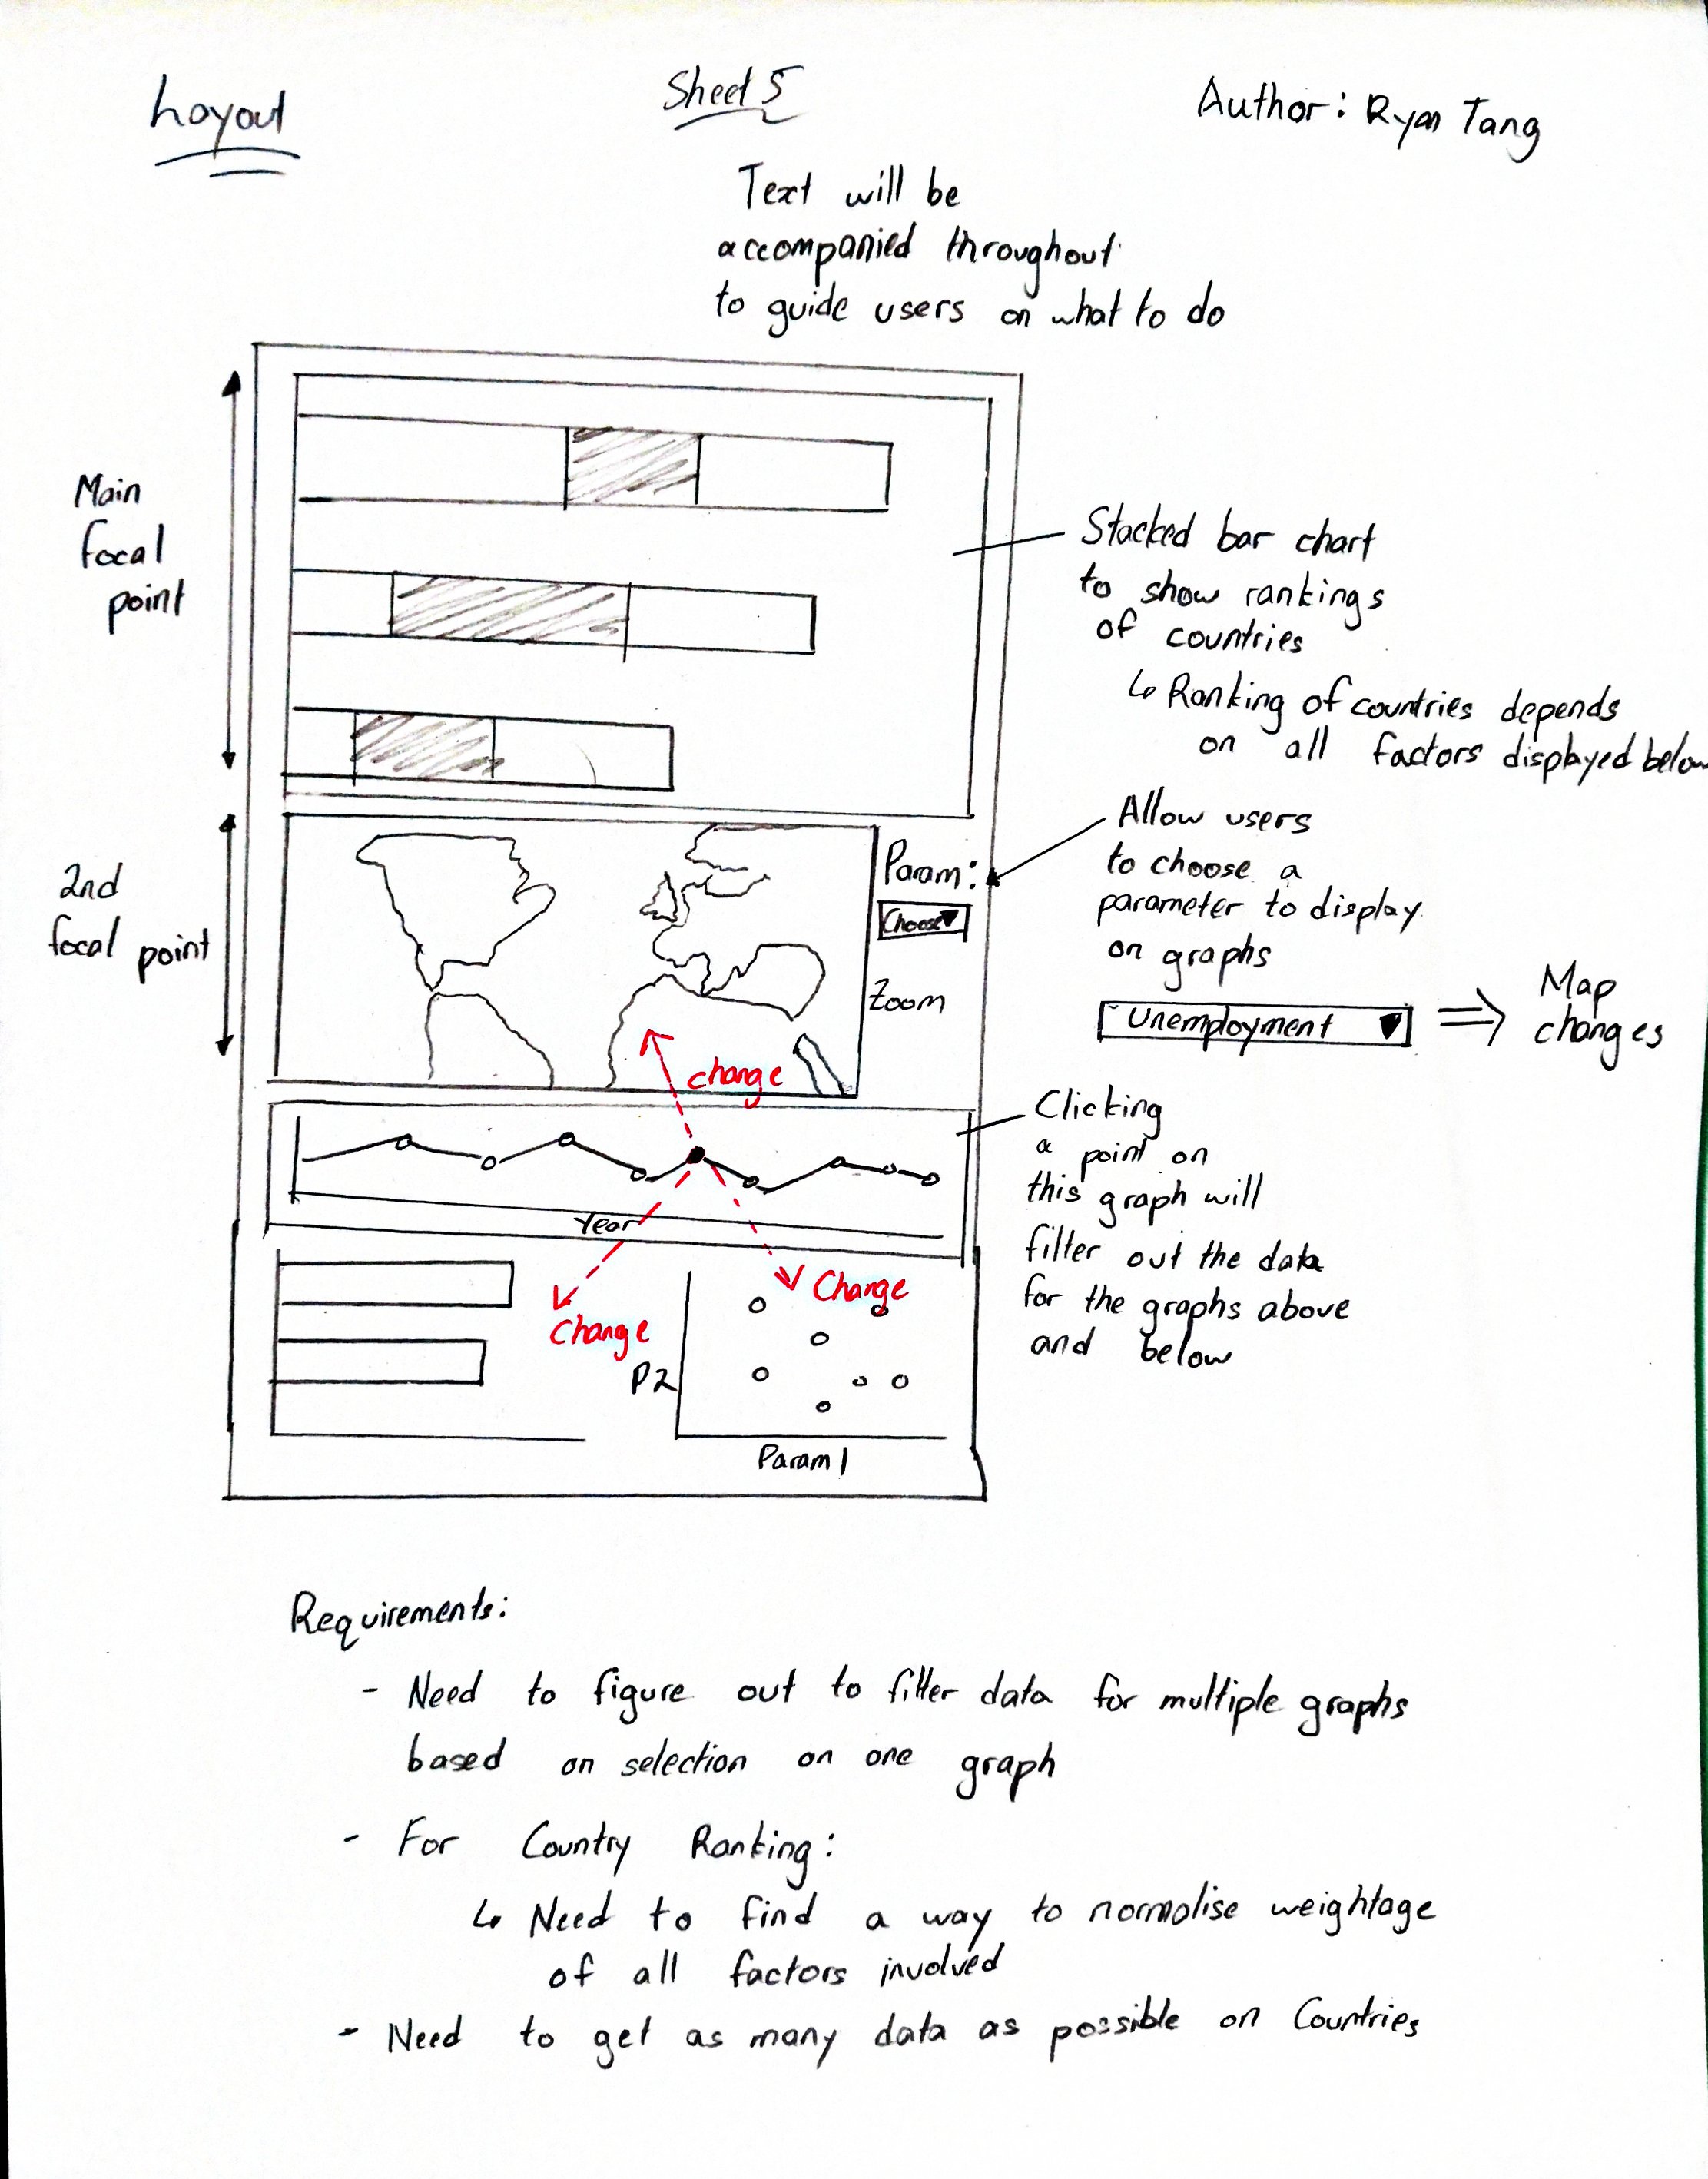 Layout
Sheet 5
Author: Ryan Tang
Text will be
accompanied throughout
to guide users on what to do
Main
focal
point
Stacked bar chart
to show rankings
of countries
↳ Ranking of countries depends
on all factors displayed below
2nd
focal point
Param:
Choose ▼
Zoom
Allow users
to choose a
parameter to display
on graphs
Unemployment ▼ ⇒ Map
changes
change
Clicking
a point on
this graph will
filter out the data
for the graphs above
and below
Year
Change
Change
P2
Param 1
Requirements:
- Need to figure out to filter data for multiple graphs
based on selection on one graph
- For Country Ranking:
↳ Need to find a way to normalise weightage
of all factors involved
- Need to get as many data as possible on Countries